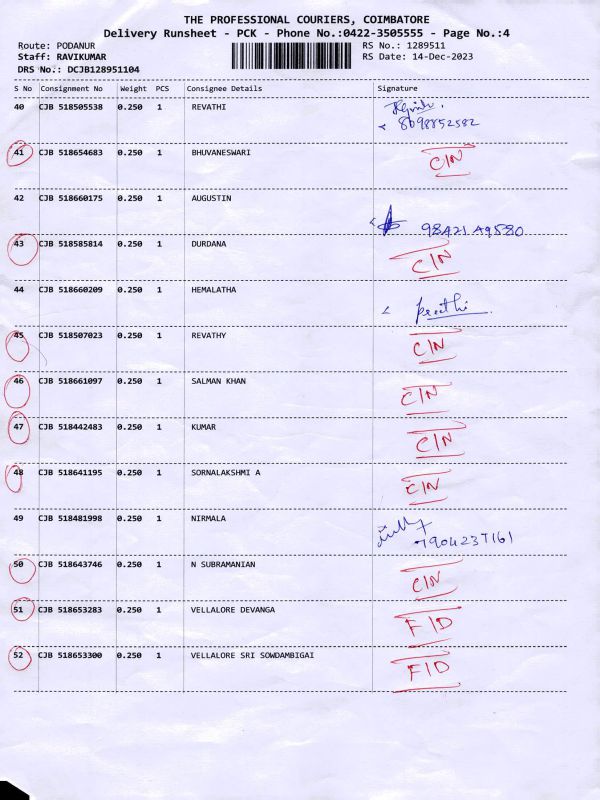 THE PROFESSIONAL COURIERS, COIMBATORE
Delivery Runsheet - PCK - Phone No.:0422-3505555 - Page No.:4
Route: PODANUR RS No.: 1289511
Staff: RAVIKUMAR RS Date: 14-Dec-2023
DRS No.: DCJB128951104
S No Consignment No Weight PCS Consignee Details Signature
40 CJB 518505538 0.250 1 REVATHI
8098852582
41 CJB 518654683 0.250 1 BHUVANESWARI C/N
42 CJB 518660175 0.250 1 AUGUSTIN
98421 49580
43 CJB 518585814 0.250 1 DURDANA C/N
44 CJB 518660209 0.250 1 HEMALATHA
Preethi
45 CJB 518507023 0.250 1 REVATHY C/N
46 CJB 518661097 0.250 1 SALMAN KHAN C/N
47 CJB 518442483 0.250 1 KUMAR C/N
48 CJB 518641195 0.250 1 SORNALAKSHMI A C/N
49 CJB 518481998 0.250 1 NIRMALA
7904237161
50 CJB 518643746 0.250 1 N SUBRAMANIAN C/N
51 CJB 518653283 0.250 1 VELLALORE DEVANGA F/D
52 CJB 518653300 0.250 1 VELLALORE SRI SOWDAMBIGAI F/D